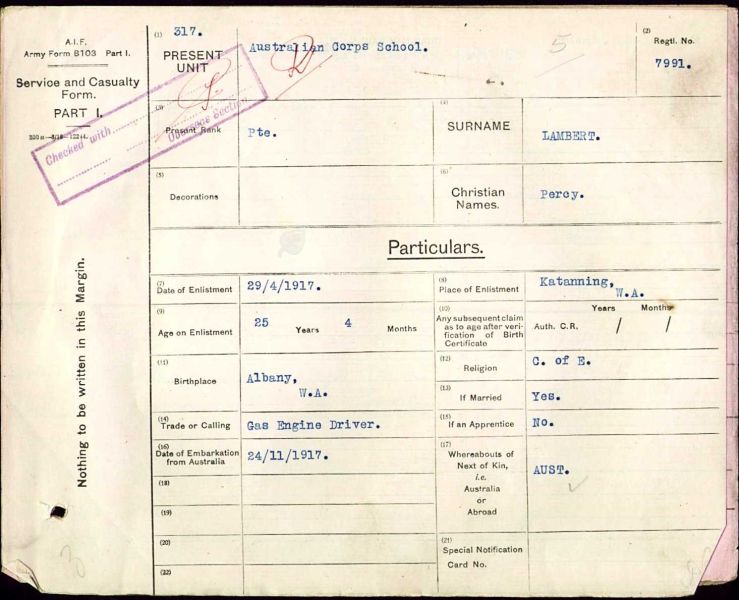 A.I.F.
Army Form B103 Part I.
Service and Casualty
Form.
PART I.
Checked with
Overseas Section
Nothing to be written in this Margin.
(1) 317.
PRESENT
UNIT
Australian Corps School.
5
(2)
Regtl. No.
7991.
(3)
Present Rank
Pte.
SURNAME
LAMBERT.
(5)
Decorations
(6)
Christian
Names.
Percy.
Particulars.
(7)
Date of Enlistment
29/4/1917.
(8)
Place of Enlistment
Katanning,
W.A.
(9)
Age on Enlistment
25 Years 4 Months
(10)
Any subsequent claim
as to age after veri-
fication of Birth
Certificate
Years Months
Auth. C.R. / /
(11)
Birthplace
Albany,
W.A.
(12)
Religion
C. of E.
(13)
If Married
Yes.
(14)
Trade or Calling
Gas Engine Driver.
(15)
If an Apprentice
No.
(16)
Date of Embarkation
from Australia
24/11/1917.
(17)
Whereabouts of
Next of Kin,
i.e.
Australia
or
Abroad
AUST.
(18)
(19)
(20)
(21)
Special Notification
Card No.
(22)
3